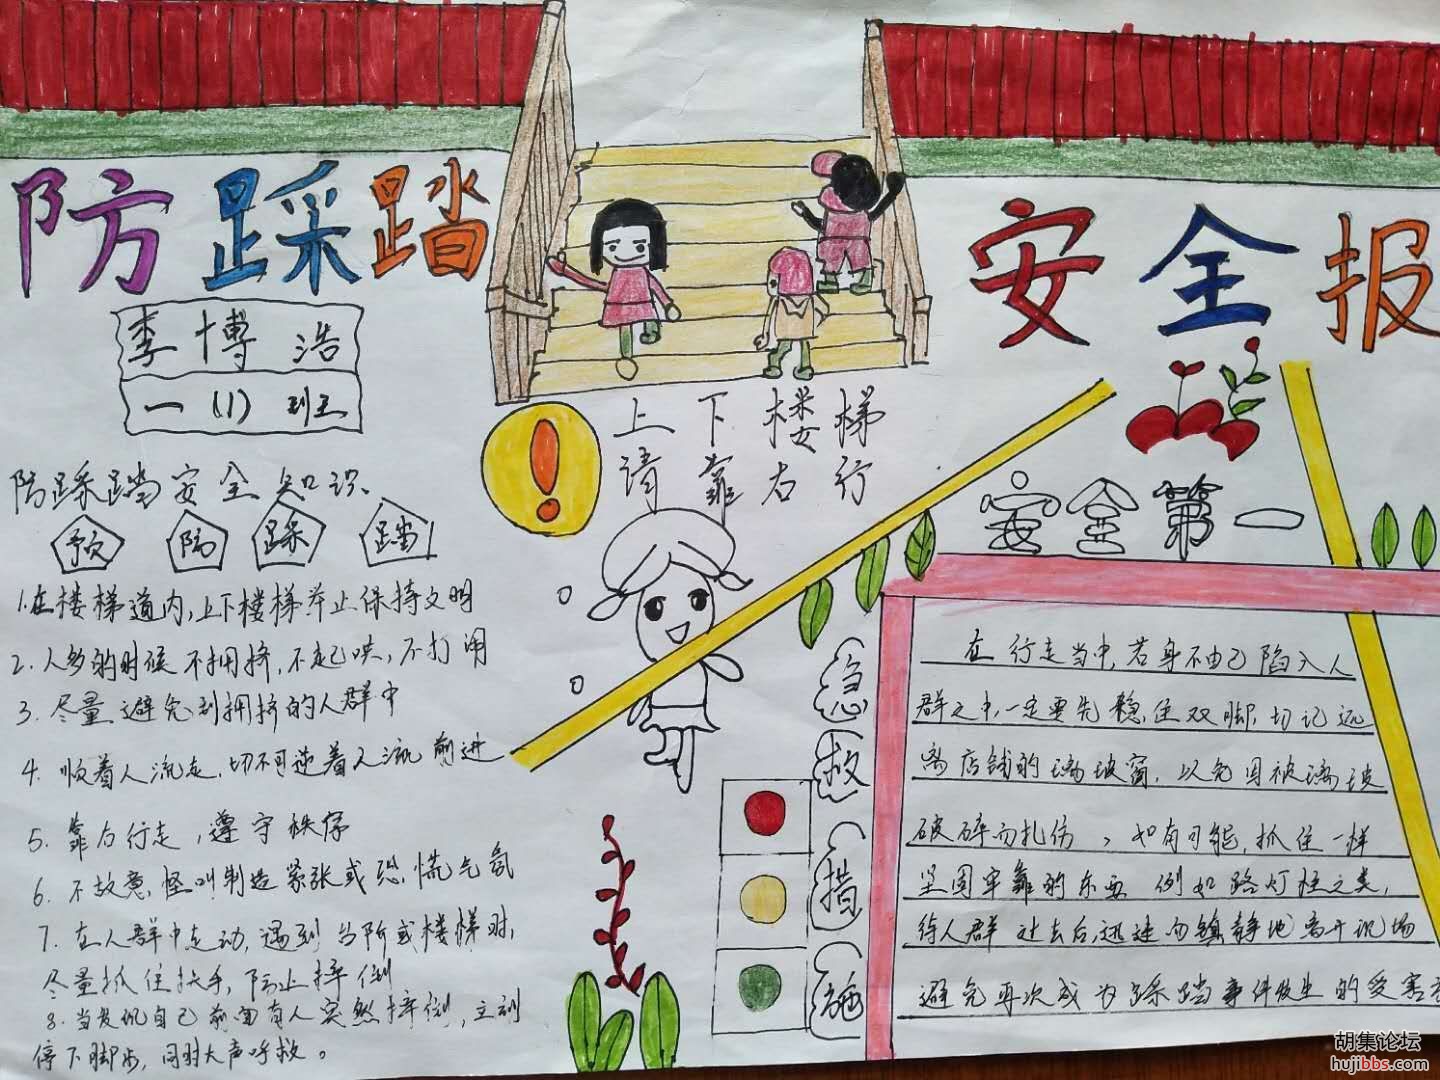 防踩踏
安全报
李博浩
一(1)班
上下楼梯
请靠右行
防踩踏安全知识
预防踩踏
1.在楼梯道内,上下楼梯举止保持文明
2.人多的时候不拥挤,不起哄,不打闹
3.尽量避免到拥挤的人群中
4.顺着人流走,切不可逆着人流前进
5.靠右行走,遵守秩序
6.不故意怪叫制造紧张或恐慌气氛
7.在人群中走动,遇到台阶或楼梯时,
尽量抓住扶手,防止摔倒
8.当发现自己前面有人突然摔倒,立刻
停下脚步,同时大声呼救。
安全第一
急救措施
在行走当中,若身不由己陷入人
群之中,一定要先稳住双脚,切记远
离店铺的玻璃窗,以免因被玻璃
破碎而扎伤,如有可能,抓住一样
坚固牢靠的东西 例如路灯柱之类,
待人群过去后,迅速而镇静地离开现场
避免再次成为踩踏事件发生的受害
胡集论坛
hujibbs.com